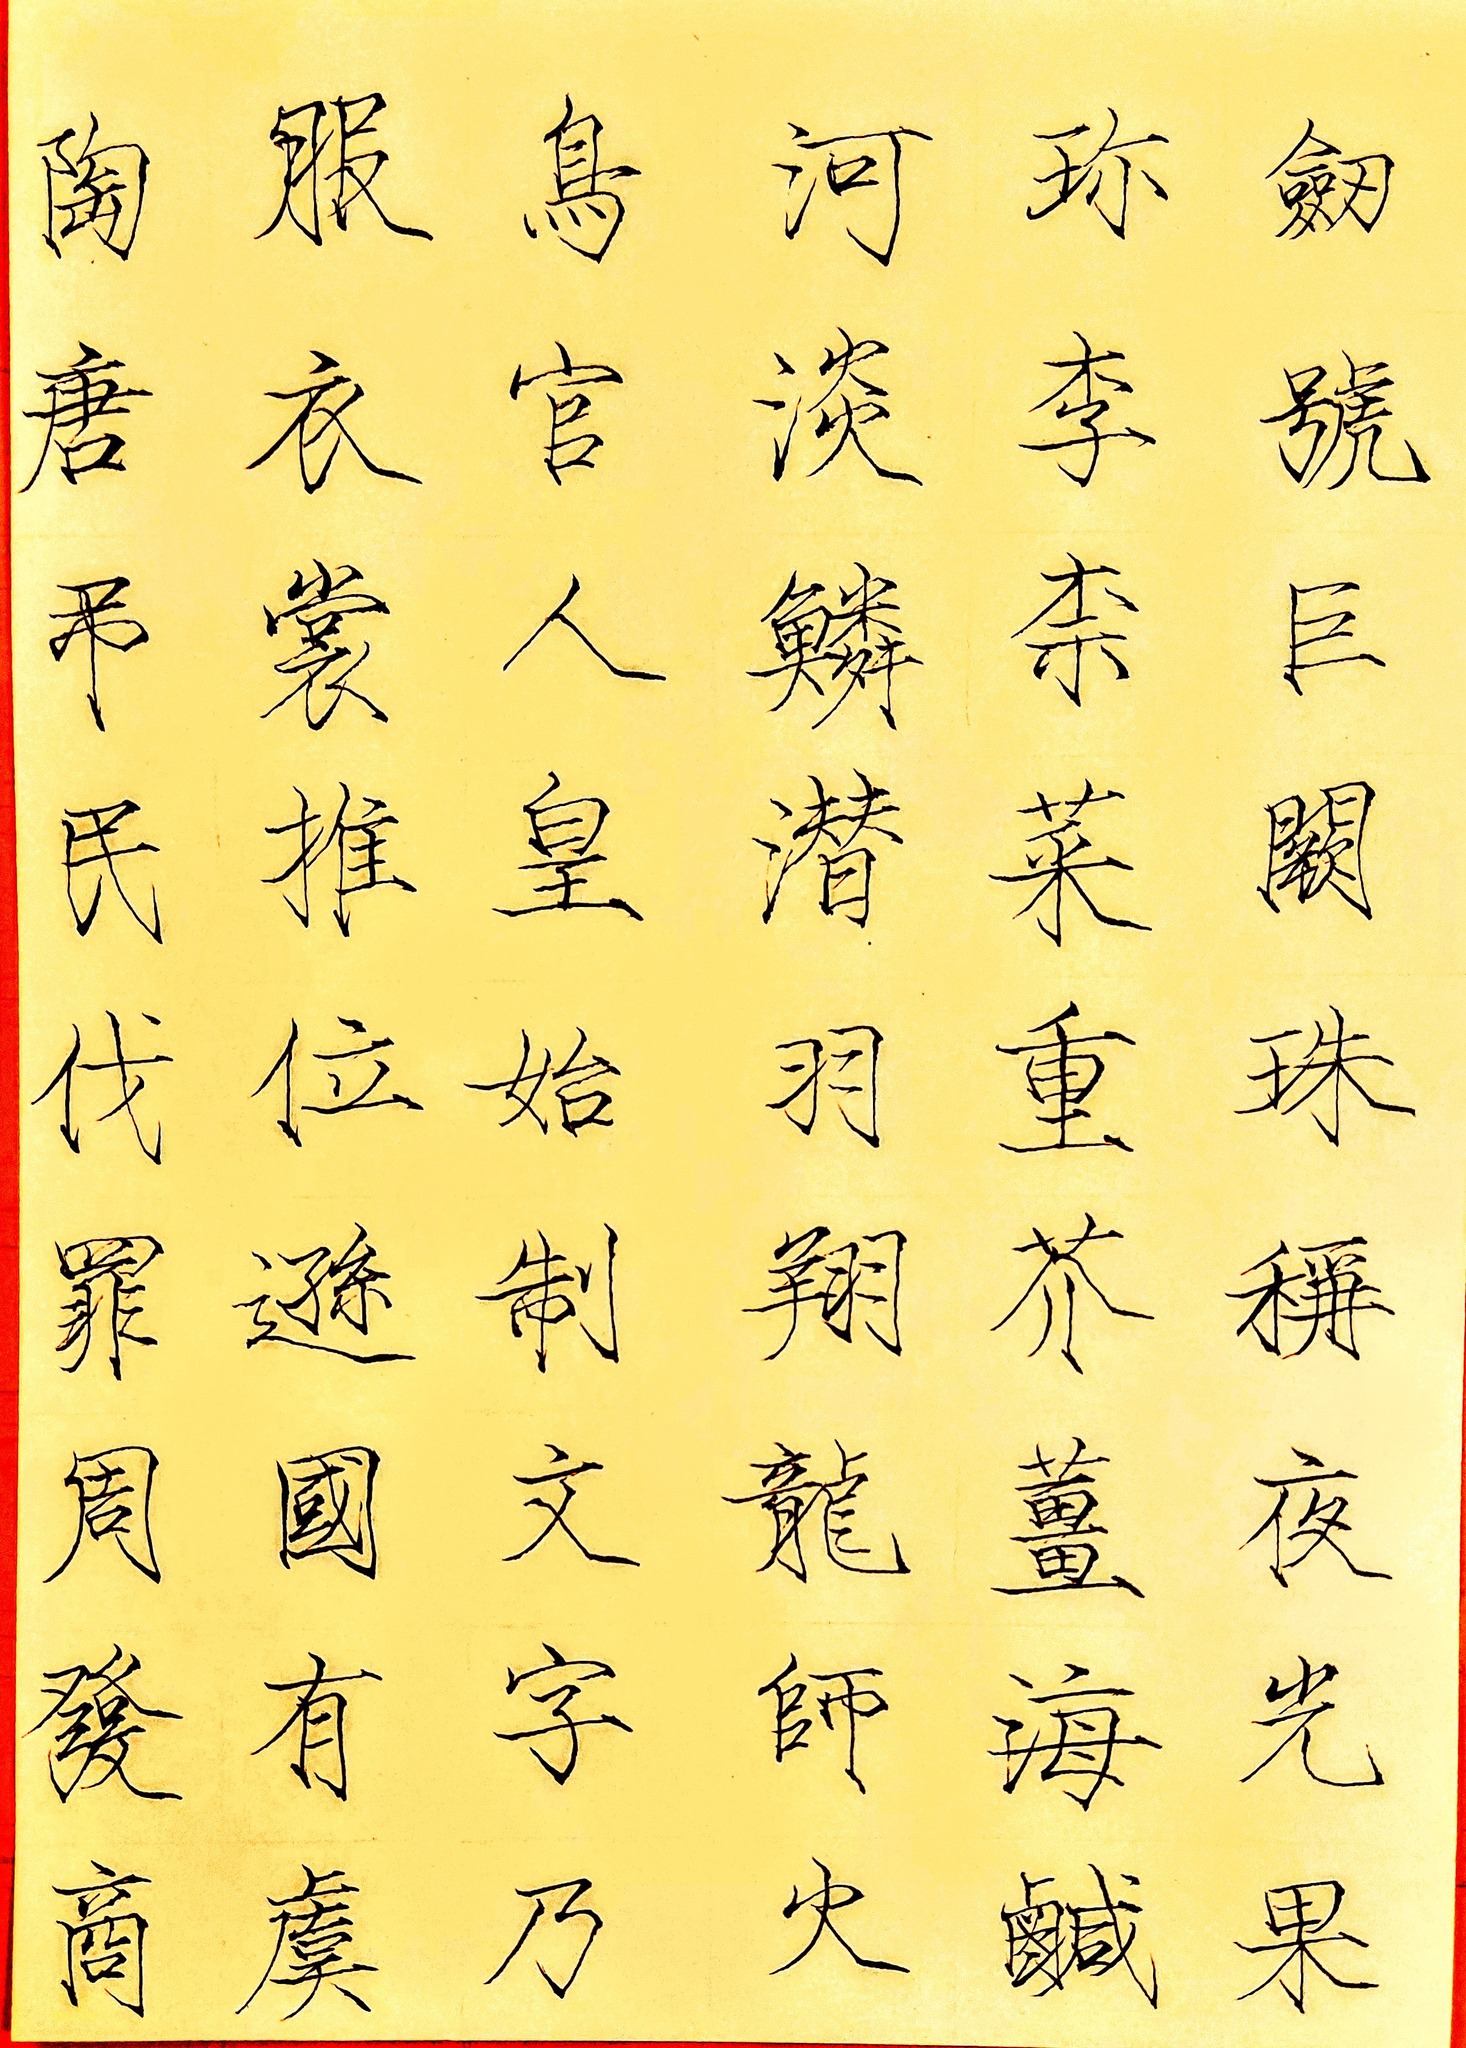 劔號巨闕珠稱夜光果
珎李柰菜重芥薑海鹹
河淡鱗潜羽翔龍師火
鳥官人皇始制文字乃
服衣裳推位遜國有虞
陶唐弔民伐罪周發商